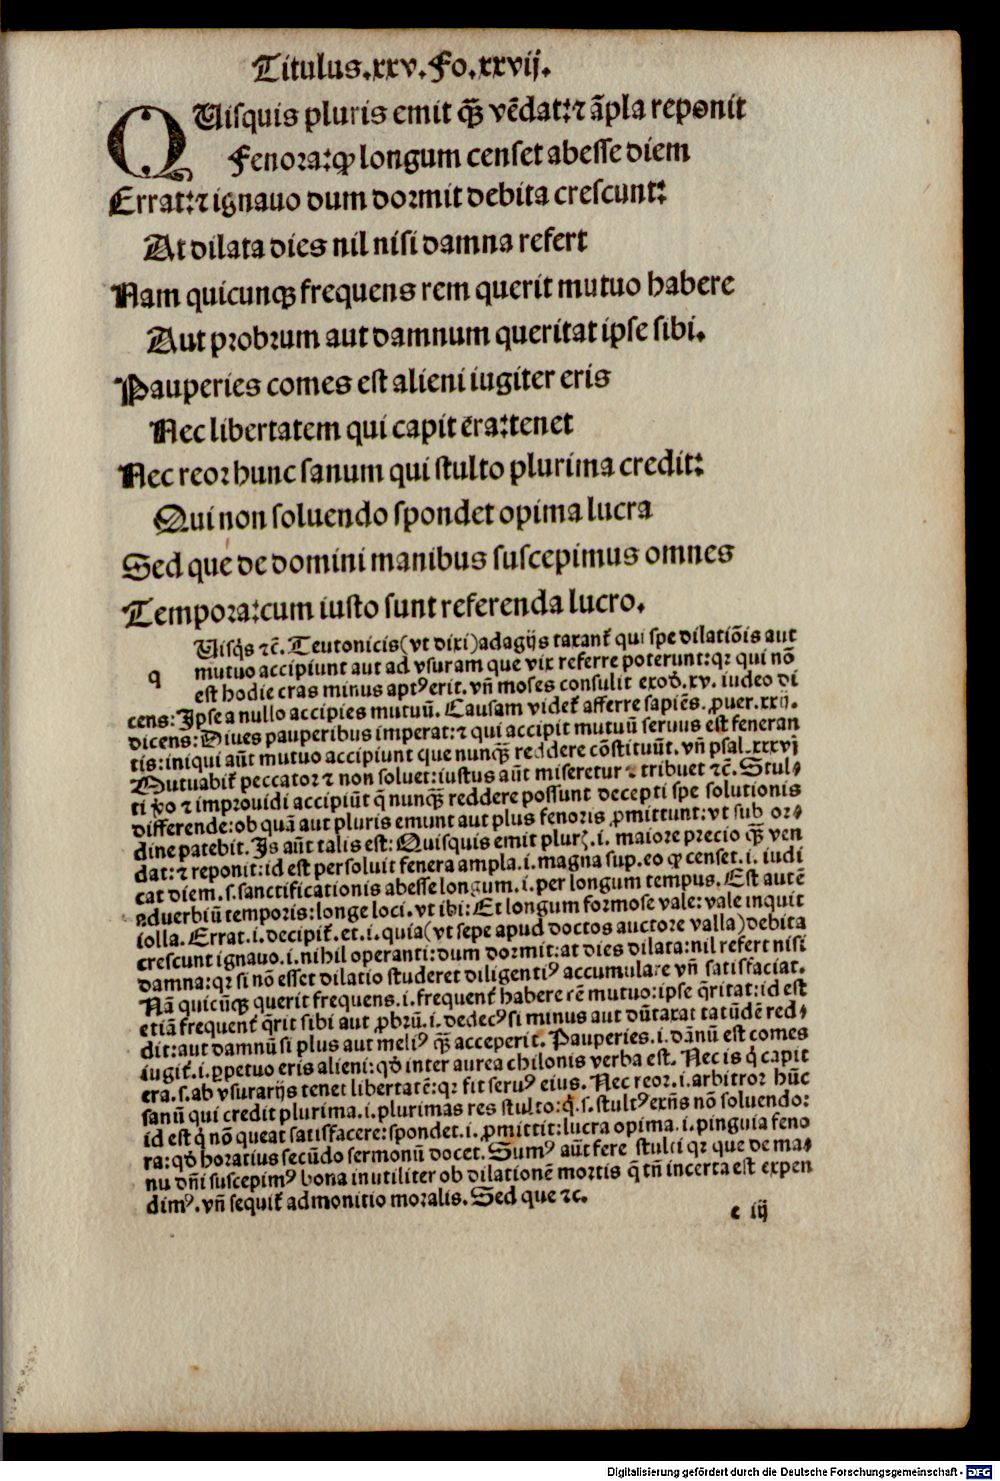 Titulus.xxv.Fo.xxvij.
QUisquis pluris emit qꝫ vēdat:⁊ āpla reponit
Fenora:ꝙ longum censet abesse diem
Errat:⁊ ignauo dum dormit debita crescunt:
At dilata dies nil nisi damna refert
Nam quicunqꝫ frequens rem querit mutuo habere
Aut probrum aut damnum queritat ipse sibi.
Pauperies comes est alieni iugiter eris
Nec libertatem qui capit era:tenet
Nec reor hunc sanum qui stulto plurima credit:
Qui non soluendo spondet opima lucra
Sed que de domini manibus suscepimus omnes
Tempora:cum iusto sunt referenda lucro.
q Uisq̇s ⁊c̄. Teutonicis(vt dixi)adagijs taxant᷑ qui spe dilatiōis aut
mutuo accipiunt aut ad vsuram que vix referre poterunt:qꝛ qui nō
est hodie cras minus aptꝰ erit. vn̄ moses consulit exoḋ.xv. iudeo di
cens:Ipse a nullo accipies mutuū. Causam videt᷑ afferre sapiēs.ꝓuer.xxij.
dicens:Diues pauperibus imperat:⁊ qui accipit mutuū seruus est feneran
tis:iniqui aūt mutuo accipiunt que nunqꝫ reddere cōstituūt. vn̄ psal.xxxvj
Mutuabit᷑ peccator ⁊ non soluet:iustus aūt miseretur ⁊ tribuet ⁊c̄. Stul⸗
ti ꝟo ⁊ improuidi accipiūt q̄ nunqꝫ reddere possunt decepti spe solutionis
differende:ob quā aut pluris emunt aut plus fenoris ꝓmittunt:vt sub or⸗
dine patebit. Is aūt talis est:Quisquis emit plurꝭ.i. maiore precio qꝫ ven
dat:⁊ reponit:id est persoluit fenera ampla.i.magna sup.eo ꝙ censet.i. iudi
cat diem.s.sanctificationis abesse longum.i.per longum tempus. Est autē
aduerbiū temporis:longe loci.vt ibi:Et longum formose vale:vale inquit
iolla. Errat.i.decipit᷑.et.i.quia(vt sepe apud doctos auctore valla)debita
crescunt ignauo.i.nihil operanti:dum dormit:at dies dilata:nil refert nisi
damna:qꝛ si nō esset dilatio studeret diligentiꝰ accumulare vn̄ satisfaciat.
Nā quicūqꝫ querit frequens.i.frequent᷑ habere rē mutuo:ipse q̄ritat:id est
etiā frequent᷑ q̄rit sibi aut ꝓbrū.i.dedecꝰ si minus aut dūtaxat tatūdē red⸗
dit:aut damnū si plus aut meliꝰ qꝫ acceperit. Pauperies.i.dānū est comes
iugit᷑.i.ꝑpetuo eris alieni:qḋ inter aurea chilonis verba est. Nec is q̇ capit
era.s.ab vsurarijs tenet libertatē:qꝛ fit seruꝰ eius. Nec reor.i.arbitror hūc
sanū qui credit plurima.i.plurimas res stulto:q̇.s.stultꝰ exn̄s nō soluendo:
id est q̇ nō queat satisfacere:spondet.i.ꝓmittit:lucra opima.i.pinguia feno
ra:qḋ horatius secūdo sermonū docet. Sumꝰ aūt fere stulti qꝛ que de ma⸗
nu dn̄i suscepimꝰ bona inutiliter ob dilationē mortis q̄ tn̄ incerta est expen
dimꝰ.vn̄ sequit᷑ admonitio moralis. Sed que ⁊c.
e iij
Digitalisierung gefördert durch die Deutsche Forschungsgemeinschaft - DFG